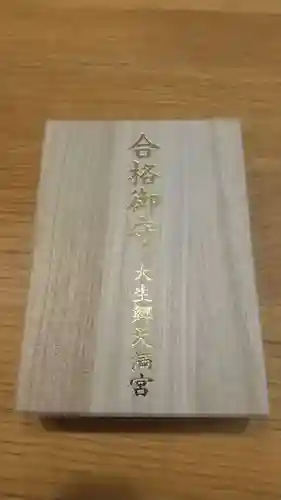 合格御守
大生郷天満宮